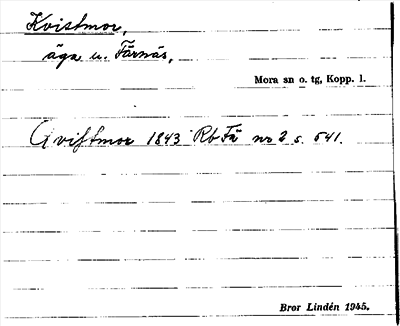 Kvistmor,
äga u. Färnäs,
Mora sn o. tg, Kopp. l.
Qvistmor 1843 Rb Fä nr 2 s. 541.
Bror Lindén 1945.